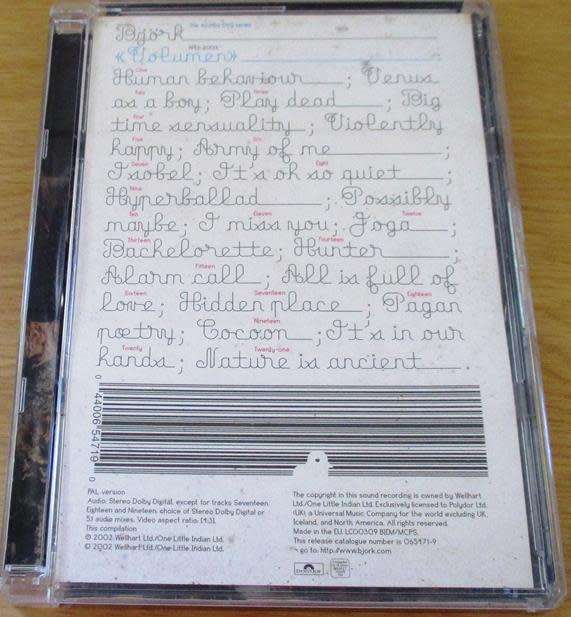 Björk
«Volumen»
One
Human behaviour ; Venus
Two Three
as a boy; Play dead ; Big
Four
time sensuality ; Violently
Five Six
happy; Army of me ;
Seven Eight
Isobel; It's oh so quiet ;
Nine
Hyperballad ; Possibly
Ten Eleven Twelve
maybe; I miss you; Joga ;
Thirteen Fourteen
Bachelorette; Hunter ;
Fifteen
Alarm call ; All is full of
Sixteen Seventeen Eighteen
love; Hidden place ; Pagan
Nineteen
poetry; Cocoon ; It's in our
Twenty Twenty-one
hands ; Nature is ancient .
0 44006 54719 0
PAL version
Audio: Stereo Dolby Digital, except for tracks Seventeen,
Eighteen and Nineteen: choice of Stereo Dolby Digital or
5.1 audio mixes. Video aspect ratio: [4:3].
This compilation
℗ 2002 Wellhart Ltd./One Little Indian Ltd.
© 2002 Wellhart Ltd./One Little Indian Ltd.
The copyright in this sound recording is owned by Wellhart
Ltd./One Little Indian Ltd. Exclusively licensed to Polydor Ltd.
(UK), a Universal Music Company for the world excluding UK,
Iceland, and North America. All rights reserved.
Made in the EU. LC00309 BIEM/MCPS.
This release catalogue number is 065471-9
go to: http://www.bjork.com
polydor